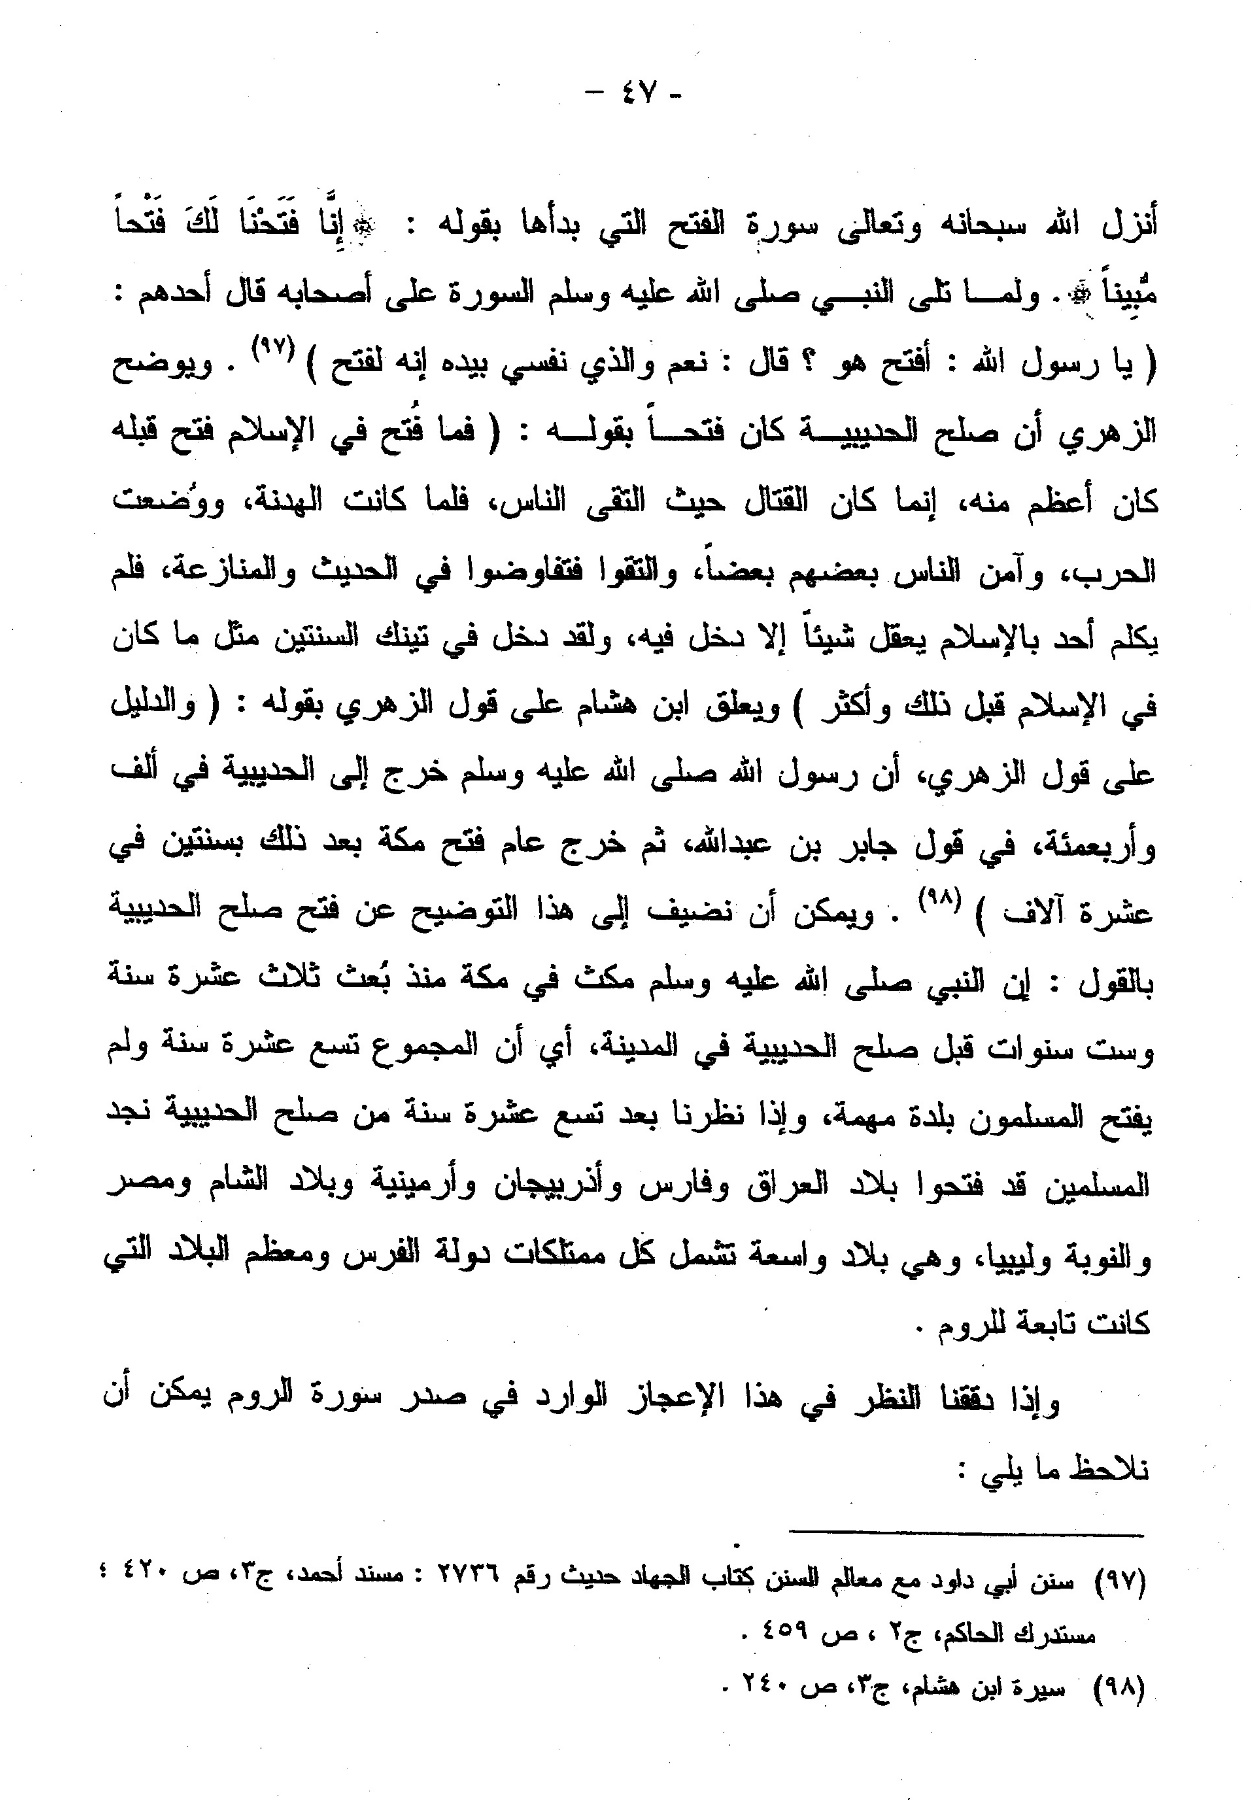 - ٤٧ -
أنزل الله سبحانه وتعالى سورة الفتح التي بدأها بقوله : ﴿ إِنَّا فَتَحْنَا لَكَ فَتْحاً
مُّبِيناً ﴾ . ولمـا تلى النبـي صلى الله عليه وسلم السورة على أصحابه قال أحدهم :
( يا رسول الله : أفتح هو ؟ قال : نعم والذي نفسي بيده إنه لفتح ) (٩٧) . ويوضح
الزهري أن صلح الحديبيـة كان فتحـاً بقولـه : ( فما فُتح في الإسلام فتح قبله
كان أعظم منه، إنما كان القتال حيث التقى الناس، فلما كانت الهدنة، ووُضعت
الحرب، وآمن الناس بعضهم بعضاً، والتقوا فتفاوضوا في الحديث والمنازعة، فلم
يكلم أحد بالإسلام يعقل شيئاً إلا دخل فيه، ولقد دخل في تينك السنتين مثل ما كان
في الإسلام قبل ذلك وأكثر ) ويعلق ابن هشام على قول الزهري بقوله : ( والدليل
على قول الزهري، أن رسول الله صلى الله عليه وسلم خرج إلى الحديبية في ألف
وأربعمئة، في قول جابر بن عبدالله، ثم خرج عام فتح مكة بعد ذلك بسنتين في
عشرة آلاف ) (٩٨) . ويمكن أن نضيف إلى هذا التوضيح عن فتح صلح الحديبية
بالقول : إن النبي صلى الله عليه وسلم مكث في مكة منذ بُعث ثلاث عشرة سنة
وست سنوات قبل صلح الحديبية في المدينة، أي أن المجموع تسع عشرة سنة ولم
يفتح المسلمون بلدة مهمة، وإذا نظرنا بعد تسع عشرة سنة من صلح الحديبية نجد
المسلمين قد فتحوا بلاد العراق وفارس وأذربيجان وأرمينية وبلاد الشام ومصر
والنوبة وليبيا، وهي بلاد واسعة تشمل كل ممتلكات دولة الفرس ومعظم البلاد التي
كانت تابعة للروم .
وإذا دققنا النظر في هذا الإعجاز الوارد في صدر سورة الروم يمكن أن
نلاحظ ما يلي :
(٩٧) سنن أبي داود مع معالم السنن كتاب الجهاد حديث رقم ٢٧٣٦ : مسند أحمد، ج٣، ص ٤٢٠ ؛
مستدرك الحاكم، ج٢ ، ص ٤٥٩ .
(٩٨) سيرة ابن هشام، ج٣، ص ٢٤٠ .